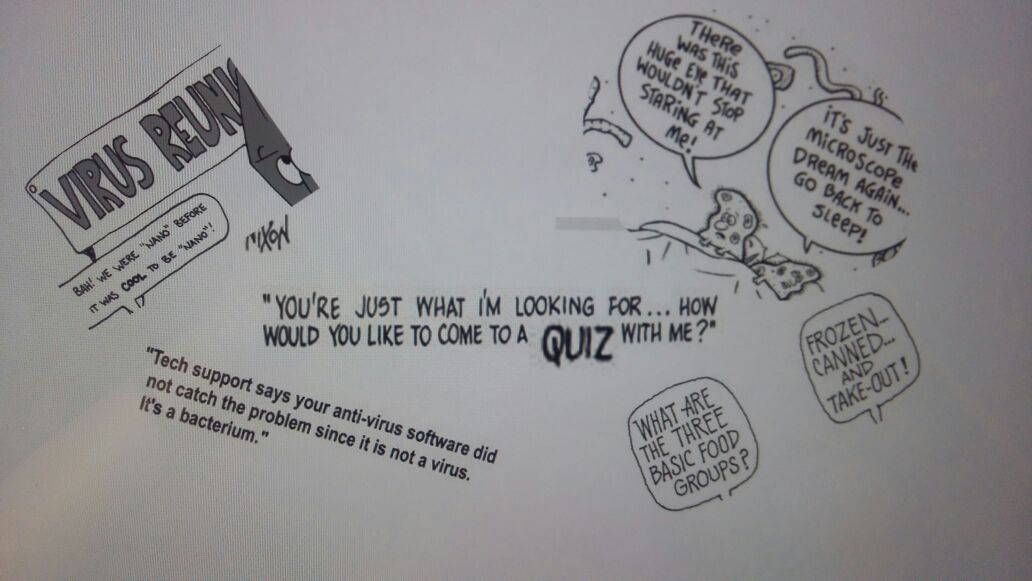 VIRUS REUNI
BAH! WE WERE "NANO" BEFORE
IT WAS COOL TO BE "NANO"!
NIXON
THERE
WAS THIS
HUGE EYE THAT
WOULDN'T STOP
STARING AT
ME!
IT'S JUST THE
MICROSCOPE
DREAM AGAIN...
GO BACK TO
SLEEP!
"YOU'RE JUST WHAT I'M LOOKING FOR... HOW
WOULD YOU LIKE TO COME TO A QUIZ WITH ME?"
"Tech support says your anti-virus software did
not catch the problem since it is not a virus.
It's a bacterium."
WHAT ARE
THE THREE
BASIC FOOD
GROUPS?
FROZEN...
CANNED...
AND
TAKE-OUT!